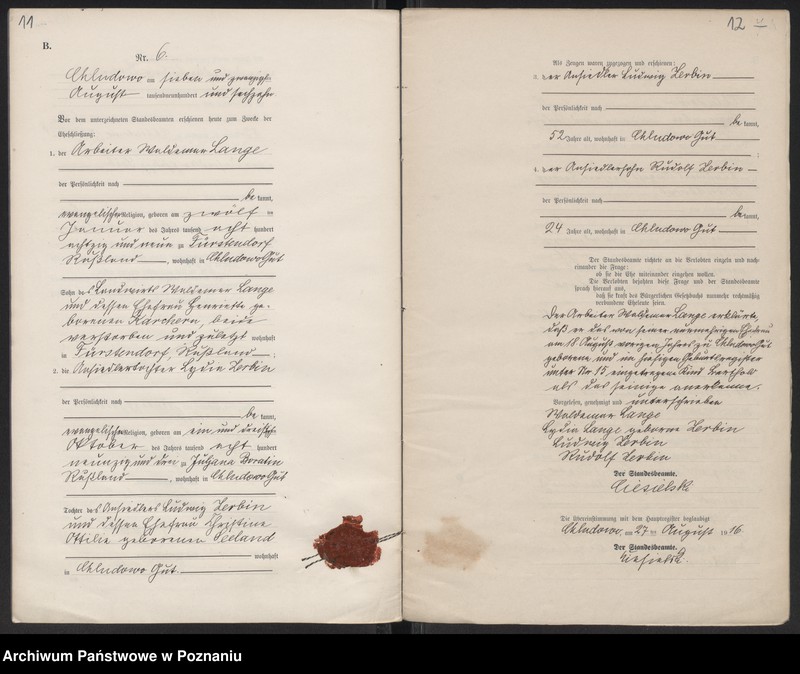 11
B.
Nr. 6
Chludowo am sieben und zwanzigsten
August tausendneunhundert und sechzehn
Vor dem unterzeichneten Standesbeamten erschienen heute zum Zwecke der
Eheschließung:
1. der Arbeiter Waldemar Lange
der Persönlichkeit nach
be kannt,
evangelischer Religion, geboren am zwölf ten
Januar des Jahres tausend acht hundert
achtzig und neun zu Fürstendorf
Rußland, wohnhaft in Chludowo Gut
Sohn des Landwirts Waldemar Lange
und dessen Ehefrau Henriette ge-
borenen, beide
verstorben und zuletzt wohnhaft
in Fürstendorf, Rußland;
2. die Ansiedlertochter Lydia Zerbin
der Persönlichkeit nach
be kannt,
evangelischer Religion, geboren am ein und dreißigsten
Oktober des Jahres tausend acht hundert
neunzig und drei zu Julijana
Rußland, wohnhaft in Chludowo Gut
Tochter des Ansiedlers Ludwig Zerbin
und dessen Ehefrau Christine
Ottilie geborenen Seeland
wohnhaft
in Chludowo Gut.
12
Als Zeugen waren zugezogen und erschienen:
3. der Ansiedler Ludwig Zerbin
der Persönlichkeit nach
be kannt,
52 Jahre alt, wohnhaft in Chludowo Gut
;
4. der Ansiedlersohn Rudolf Zerbin
der Persönlichkeit nach
be kannt,
24 Jahre alt, wohnhaft in Chludowo Gut
Der Standesbeamte richtete an die Verlobten einzeln und nach-
einander die Frage:
ob sie die Ehe miteinander eingehen wollen.
Die Verlobten bejahten diese Frage und der Standesbeamte
sprach hierauf aus,
daß sie kraft des Bürgerlichen Gesetzbuchs nunmehr rechtmäßig
verbundene Eheleute seien.
Der Arbeiter Waldemar Lange erklärte,
daß er das von seiner nunmehrigen Ehefrau
am 18 August vorigen Jahres zu Chludowo Gut
geborene und im hiesigen Geburtsregister
unter Nr 15 eingetragene Kind Berthold
als das seinige anerkenne.
Vorgelesen, genehmigt und unterschrieben
Waldemar Lange
Lydia Lange geborene Zerbin
Ludwig Zerbin
Rudolf Zerbin
Der Standesbeamte.
Ciesielski
Die Übereinstimmung mit dem Hauptregister beglaubigt
Chludowo, am 27 ten August 1916.
Der Standesbeamte.
Ciesielski
Archiwum Państwowe w Poznaniu